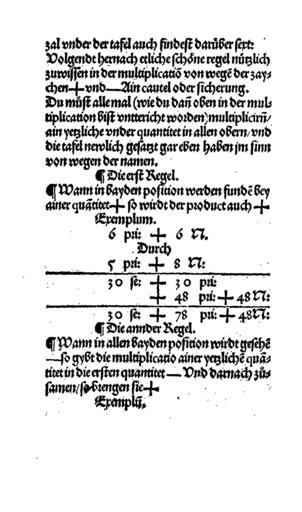 zal vnder der tafel auch findest darüber setz:
Volgendt hernach etliche schöne regel nützlich
zuwissen in der multiplicatiō von wegē der zay-
chen + vnd — Ain cautel oder sicherung.
Du müst alle mal (wie du dañ oben in der mul-
tiplication bist vntterricht worden) multiplicirñ/
ain yetzliche vnder quantitet in allen obern/vnd
die tafel newlich gesatzt gar eben haben jm sinn
von wegen der namen.
¶ Die erst Regel.
¶ Wann in bayden position werden fundē bey
ainer quātitet + so wirdt der product auch +
Exemplum.
6 pri: + 6 N.
Durch
5 pri: + 8 N:
30 se: + 30 pri:
+ 48 pri: + 48 N:
30 se: + 78 pri: + 48 N:
¶ Die annder Regel.
¶ Wann in allen bayden position wirdt gesehē
— so gybt die multiplicatio ainer yetzlichē quā-
titet in die ersten quantitet — Vnd darnach zů-
samen/so brengen sie +
Exemplū.